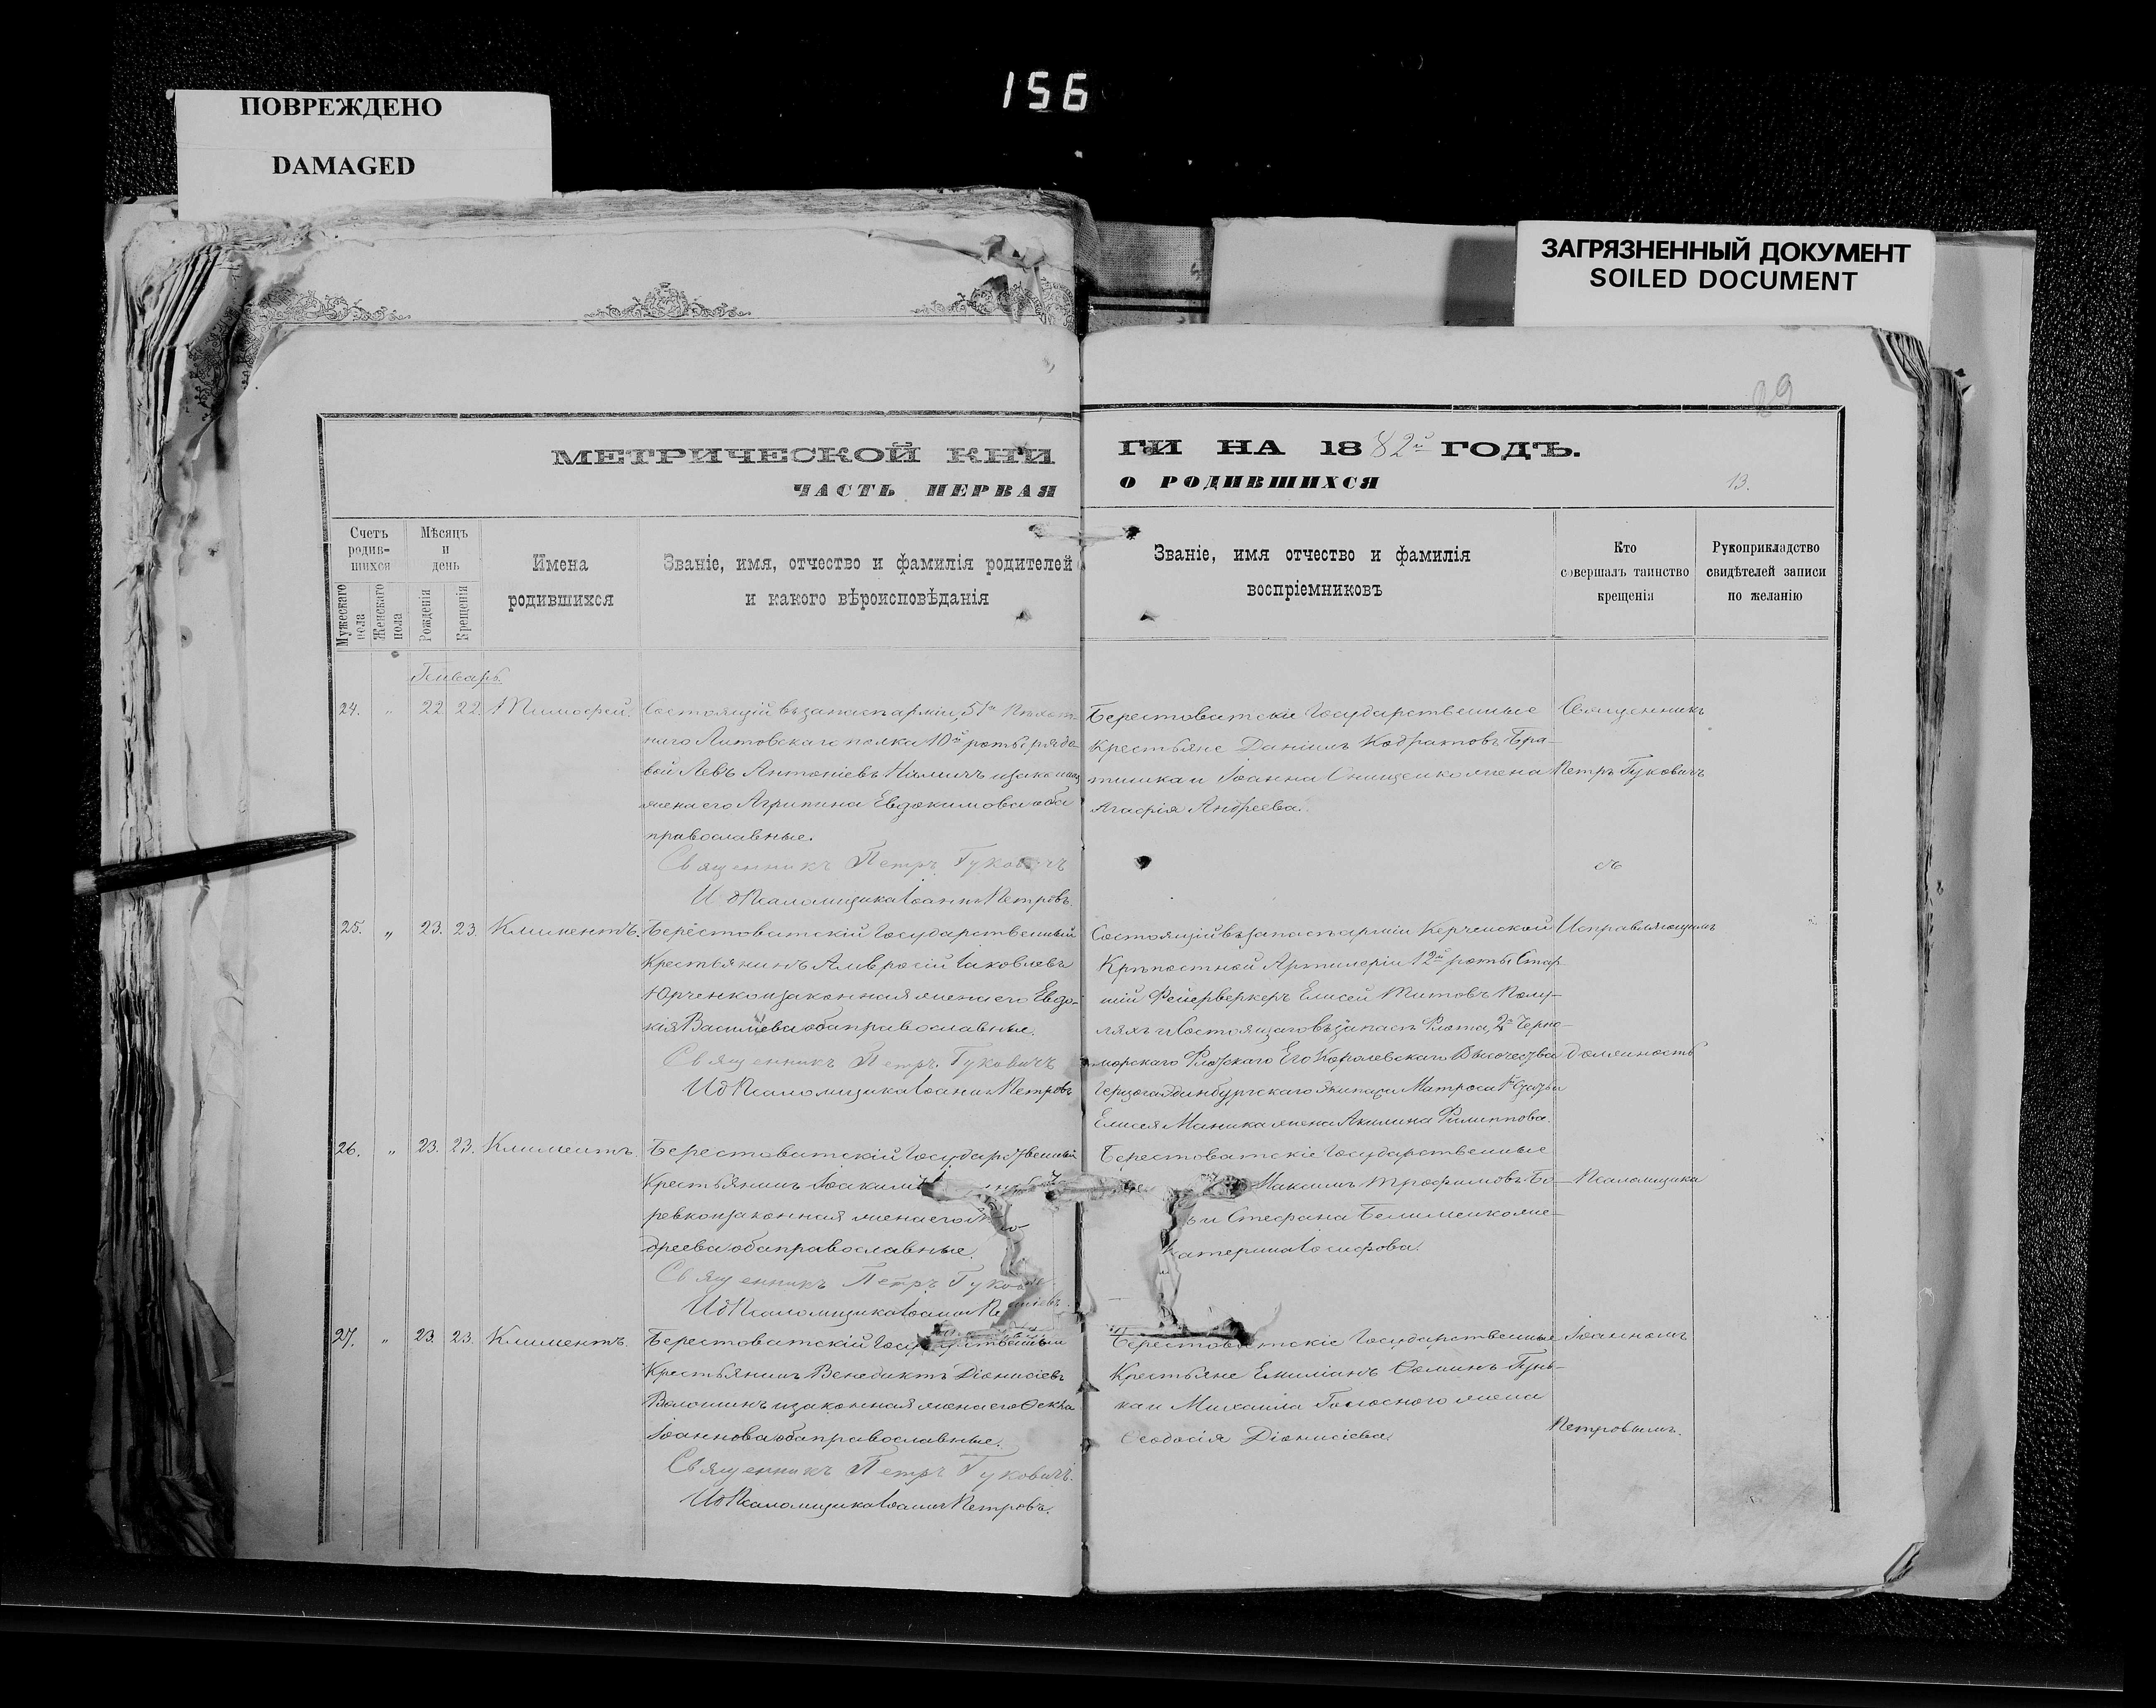 156
ПОВРЕЖДЕНО
DAMAGED
ЗАГРЯЗНЕННЫЙ ДОКУМЕНТ
SOILED DOCUMENT
МЕТРИЧЕСКОЙ КНИ
ЧАСТЬ ПЕРВАЯ
Счетъ родив=шихся
Мужескаго пола
Женскаго пола
Мѣсяцъ и день
Рожденія
Крещенія
Имена
родившихся
Званіе, имя, отчество и фамилія родителей
и какого вѣроисповѣданія
Январь.
24. " 22 22. Тимофей. Состоящій въ запасѣ арміи, 51го Пѣхот-
наго Литовскаго полка 10й роты рядо-
вой Левъ Антоніевъ и законная
жена его Агрипина Евдокимова оба
православные.
Священникъ Петръ Гуковичъ
И д Псаломщика Іоаннъ Петровъ.
25. " 23. 23. Климентъ. Берестоватскій Государственный
Крестьянинъ Амвросій Іаковлевъ
Юрченко и законная жена его Евдо-
кія Василіева оба православные.
Священникъ Петръ Гуковичъ
И д Псаломщика Іоаннъ Петровъ
26. " 23. 23. Климентъ. Берестоватскій Государственный
Крестьянинъ Іоакимъ
ревко и законная жена его
дреева оба православные.
Священникъ Петръ Гукови
И д Псаломщика Іоаннъ Пе
27. " 23. 23. Климентъ. Берестоватскій Государственный
Крестьянинъ Венедиктъ Діонисіевъ
Волошинъ и законная жена его Ѳекла
Іоаннова оба православные.
Священникъ Петръ Гуковичъ.
И д Псаломщика Іоаннъ Петровъ.
29
ГИ НА 1882й ГОДЪ.
О РОДИВШИХСЯ
13.
Званіе, имя отчество и фамилія
воспріемниковъ
Кто
совершалъ таинство
крещенія
Рукоприкладство
свидѣтелей записи
по желанію
Берестоватскіе Государственные
Крестьяне Даніилъ Кодратовъ Бра-
тишка и Іоанна Онищенко жена
Агафія Андреева.
Состоящій въ запасѣ арміи Керченской
Крѣпостной Артилеріи 12й роты Стар-
шій Фейерверкеръ Елисей Титовъ Полу-
ляхъ и Состоящаго въ запасѣ Флота, 2го Черно-
морскаго Флотскаго Его Королевскаго Высочества
Герцога Эдинбургскаго Экипажа Матроса 1й Статьи
Елисея Маника жена Акилина Филиппова.
Берестоватскіе Государственные
Максимъ Трофимовъ Бо-
и Стефана Белименко же-
катерина Іосифова.
Берестоватскіе Государственные
Крестьяне Емиліанъ Ѳоминъ Гунь-
ка и Михаила Голосного жена
Ѳеодосія Діонисіева.
Священникъ
Петръ Гуковичъ
съ
Исправляющимъ
должность
Псаломщика
Іоанномъ
Петровымъ.